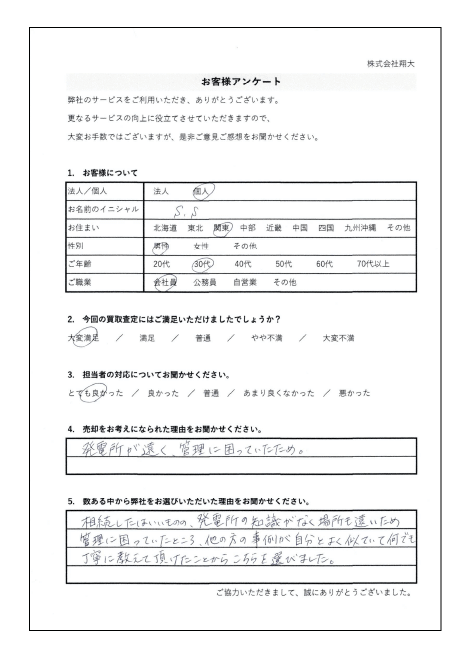 株式会社翔大
お客様アンケート
弊社のサービスをご利用いただき、ありがとうございます。
更なるサービスの向上に役立てさせていただきますので、
大変お手数ではございますが、是非ご意見ご感想をお聞かせください。
1. お客様について
法人／個人 法人 個人
お名前のイニシャル S.S
お住まい 北海道 東北 関東 中部 近畿 中国 四国 九州沖縄 その他
性別 男性 女性 その他
ご年齢 20代 30代 40代 50代 60代 70代以上
ご職業 会社員 公務員 自営業 その他
2. 今回の買取査定にはご満足いただけましたでしょうか？
大変満足 ／ 満足 ／ 普通 ／ やや不満 ／ 大変不満
3. 担当者の対応についてお聞かせください。
とても良かった ／ 良かった ／ 普通 ／ あまり良くなかった ／ 悪かった
4. 売却をお考えになられた理由をお聞かせください。
発電所が遠く、管理に困っていたため。
5. 数ある中から弊社をお選びいただいた理由をお聞かせください。
相続したはいいものの、発電所の知識がなく場所も遠いため
管理に困っていたところ、他の方の事例が自分とよく似ていて何でも
丁寧に教えて頂けたことからこちらを選びました。
ご協力いただきまして、誠にありがとうございました。